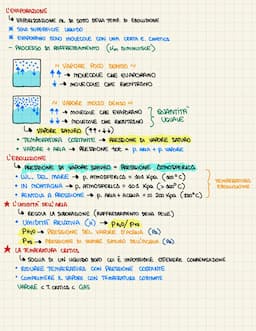 L'EVAPORAZIONE
↳ VAPORIZZAZIONE AL DI SOTTO DELLA TEMP. DI EBOLLIZIONE
* SOLO SUPERFICIE LIQUIDO
* EVAPORANO SOLO MOLECOLE CON UNA CERTA E CINETICA
- PROCESSO DI RAFFREDDAMENTO (Um DIMINUISCE)
~ VAPORE POCO DENSO ~
↑↑ → MOLECOLE CHE EVAPORANO
↓ → MOLECOLE CHE RIENTRANO
~ VAPORE MOLTO DENSO ~
↑↑ → MOLECOLE CHE EVAPORANO
↓↓ → MOLECOLE CHE RIENTRANO
QUANTITÀ UGUALE
↳ VAPORE SATURO (↑↑=↓↓)
• TEMPERATURA COSTANTE → PRESSIONE DI VAPORE SATURO
• VAPORE + ARIA → PRESSIONE TOT = P. ARIA + P. VAPORE
L'EBOLLIZIONE
↳ PRESSIONE DI VAPORE SATURO = PRESSIONE ATMOSFERICA
* LIV. DEL MARE → P. ATMOSFERICA = 101 KPa (100°C)
* IN MONTAGNA → P. ATMOSFERICA < 101 KPa (>100°C)
* PENTOLA A PRESSIONE → P. ARIA + ACQUA = 200 KPa (120°C)
TEMPERATURA EBOLLIZIONE
* L'UMIDITÀ DELL'ARIA
↳ REGOLA LA SUDORAZIONE (RAFFREDDAMENTO DELLA PELLE)
* UMIDITÀ RELATIVA (%) → PH2O / PVS
PH2O → PRESSIONE DEL VAPORE D'ACQUA (Pa)
PVS → PRESSIONE DI VAPORE SATURO DELL'ACQUA (Pa)
★ LA TEMPERATURA CRITICA
↳ SOGLIA DI UN LIQUIDO SOTTO CUI È IMPOSSIBILE OTTENERE CONDENSAZIONE
• RIDURRE TEMPERATURA CON PRESSIONE COSTANTE
• COMPRIMERE IL VAPORE CON TEMPERATURA COSTANTE
VAPORE < T. CRITICA < GAS